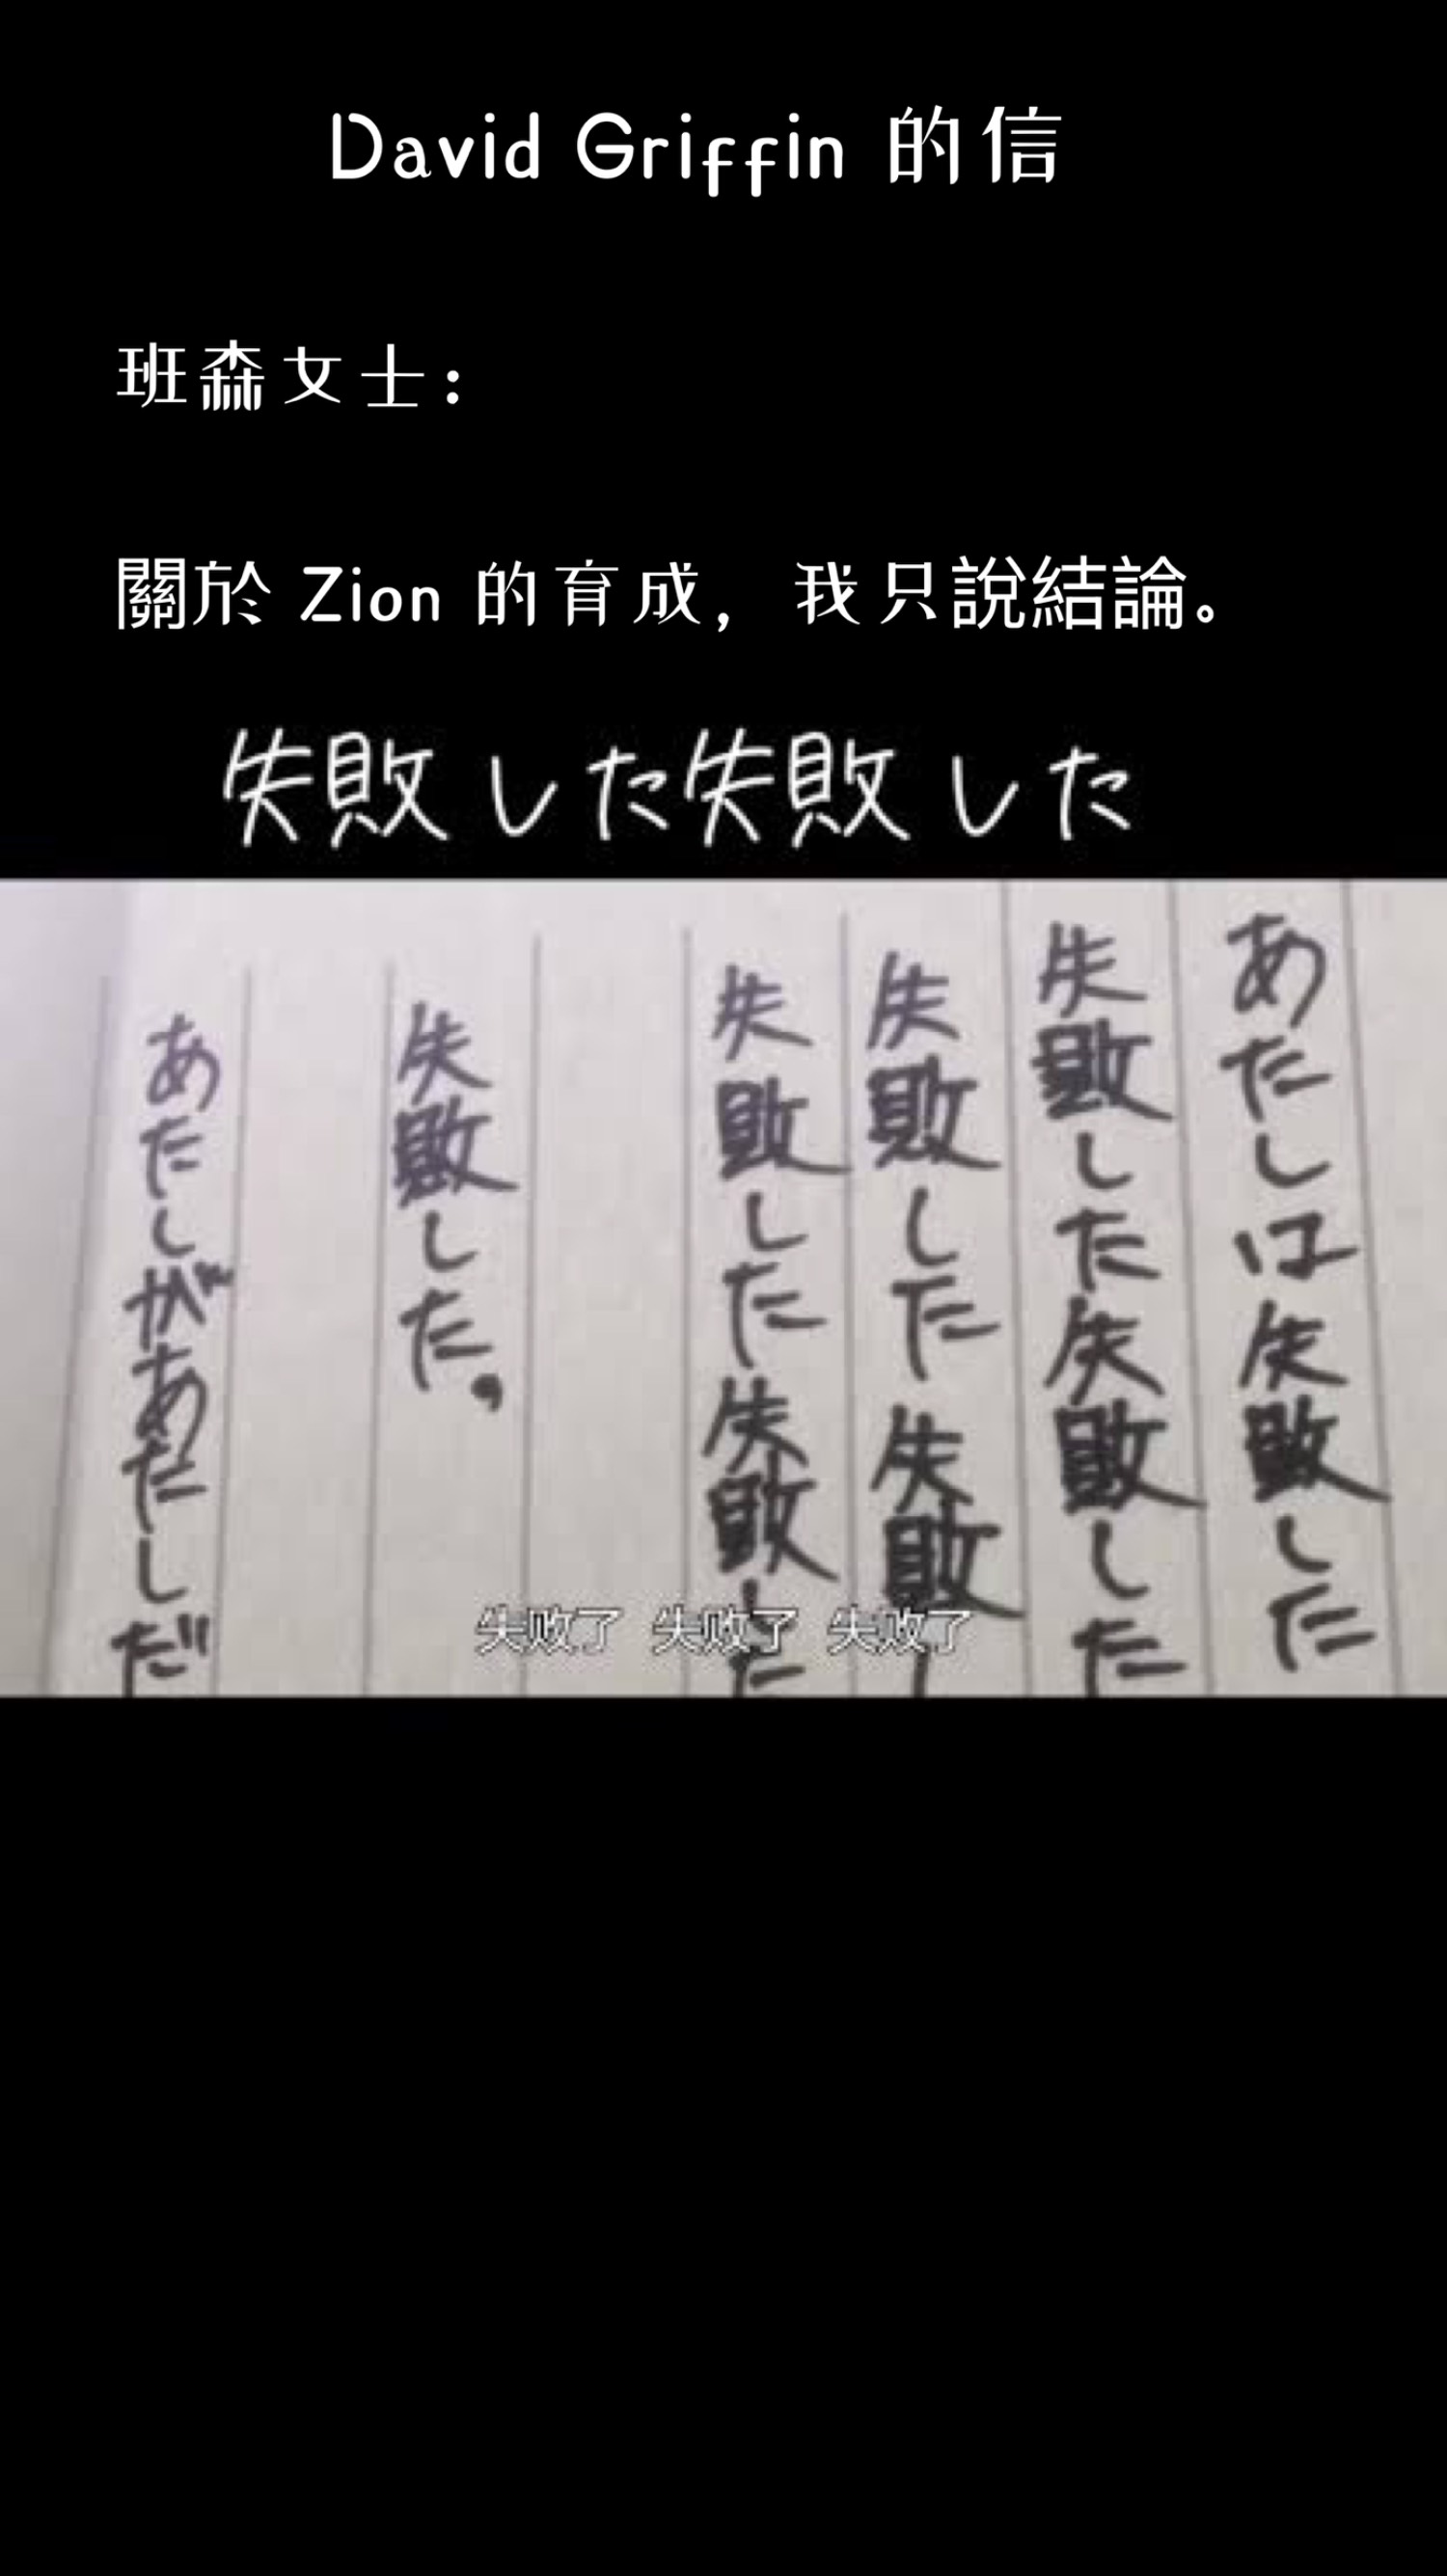 David Griffin 的信
班森女士：
關於 Zion 的育成，我只說結論。
失敗した失敗した
あたしは失敗した
失敗した失敗した
失敗した失敗し
失敗した失敗した
失敗した,
あたしがあたしだ
失败了 失败了 失败了